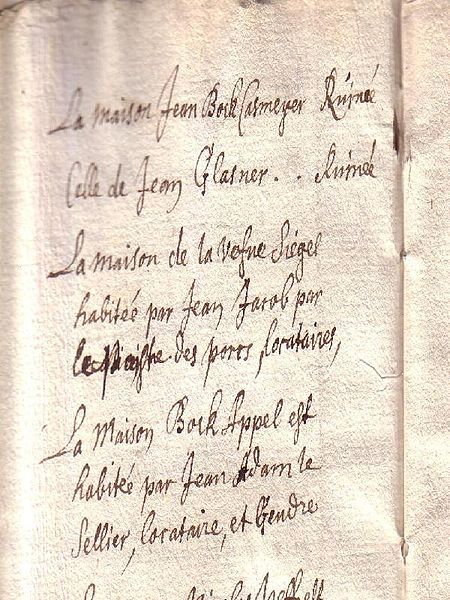 La maison Jean Bock Casmeyer Ruinée
Celle de Jean Glasner . . Ruinée
La maison de la vefue Siegel
habitée par Jean Jacob par
le des porcs, locataires,
La Maison Bock Appel est
habitée par Jean Adam le
Sellier, locataire, et Gendre